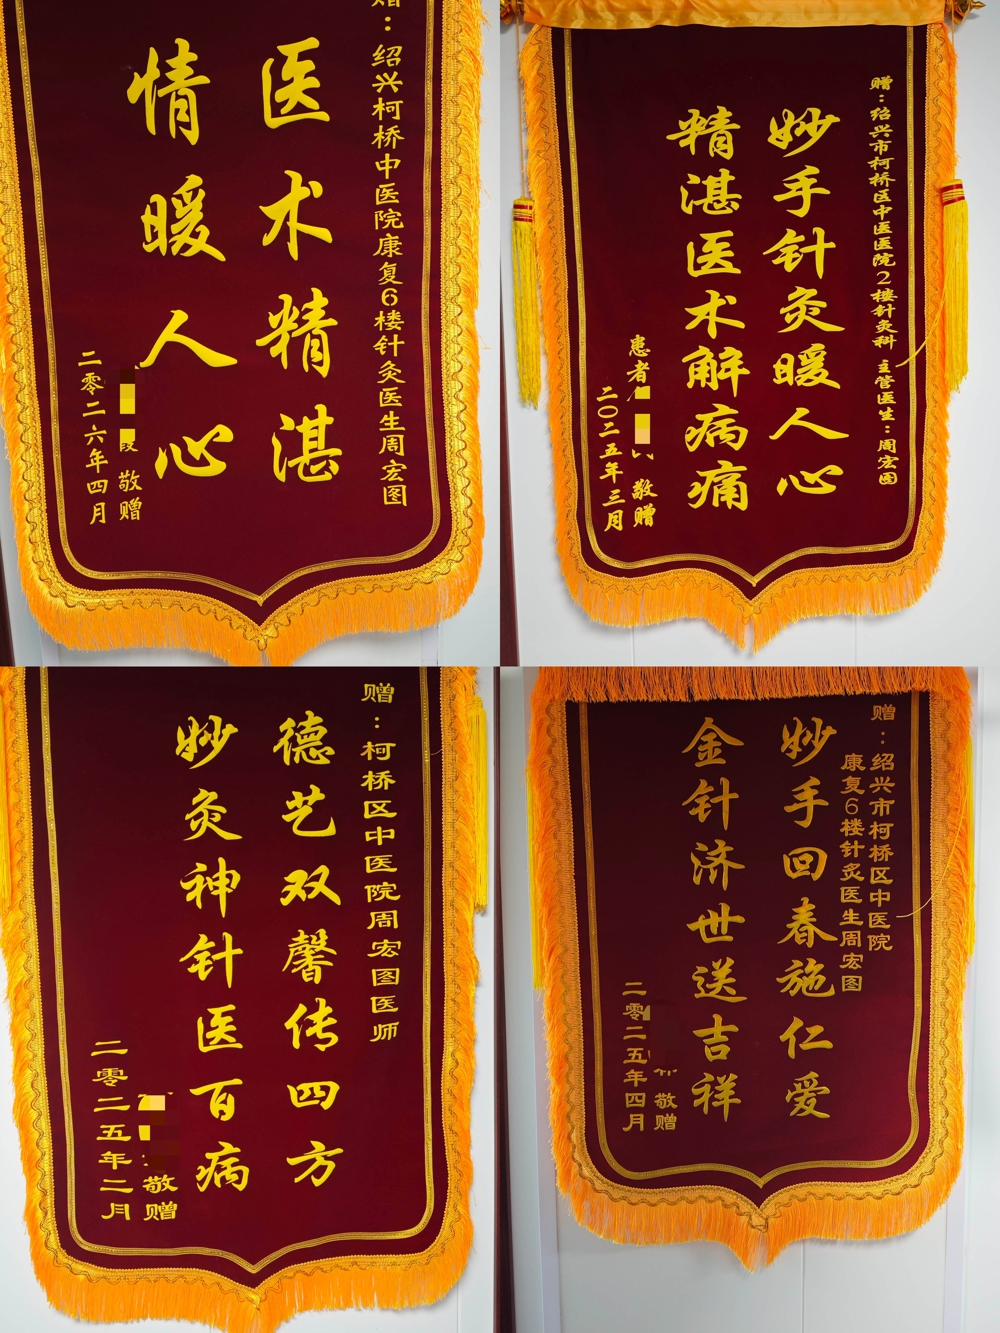 赠：绍兴柯桥中医院康复6楼针灸医生周宏图
医术精湛
情暖人心
敬赠
二零二六年四月
赠：绍兴市柯桥区中医医院2楼针灸科 主管医生：周宏图
妙手针灸暖人心
精湛医术解病痛
患者
敬赠
二〇二五年三月
赠：柯桥区中医院周宏图医师
德艺双馨传四方
妙灸神针医百病
敬赠
二零二五年二月
赠：绍兴市柯桥区中医院
康复6楼针灸医生周宏图
妙手回春施仁爱
金针济世送吉祥
敬赠
二零二五年四月